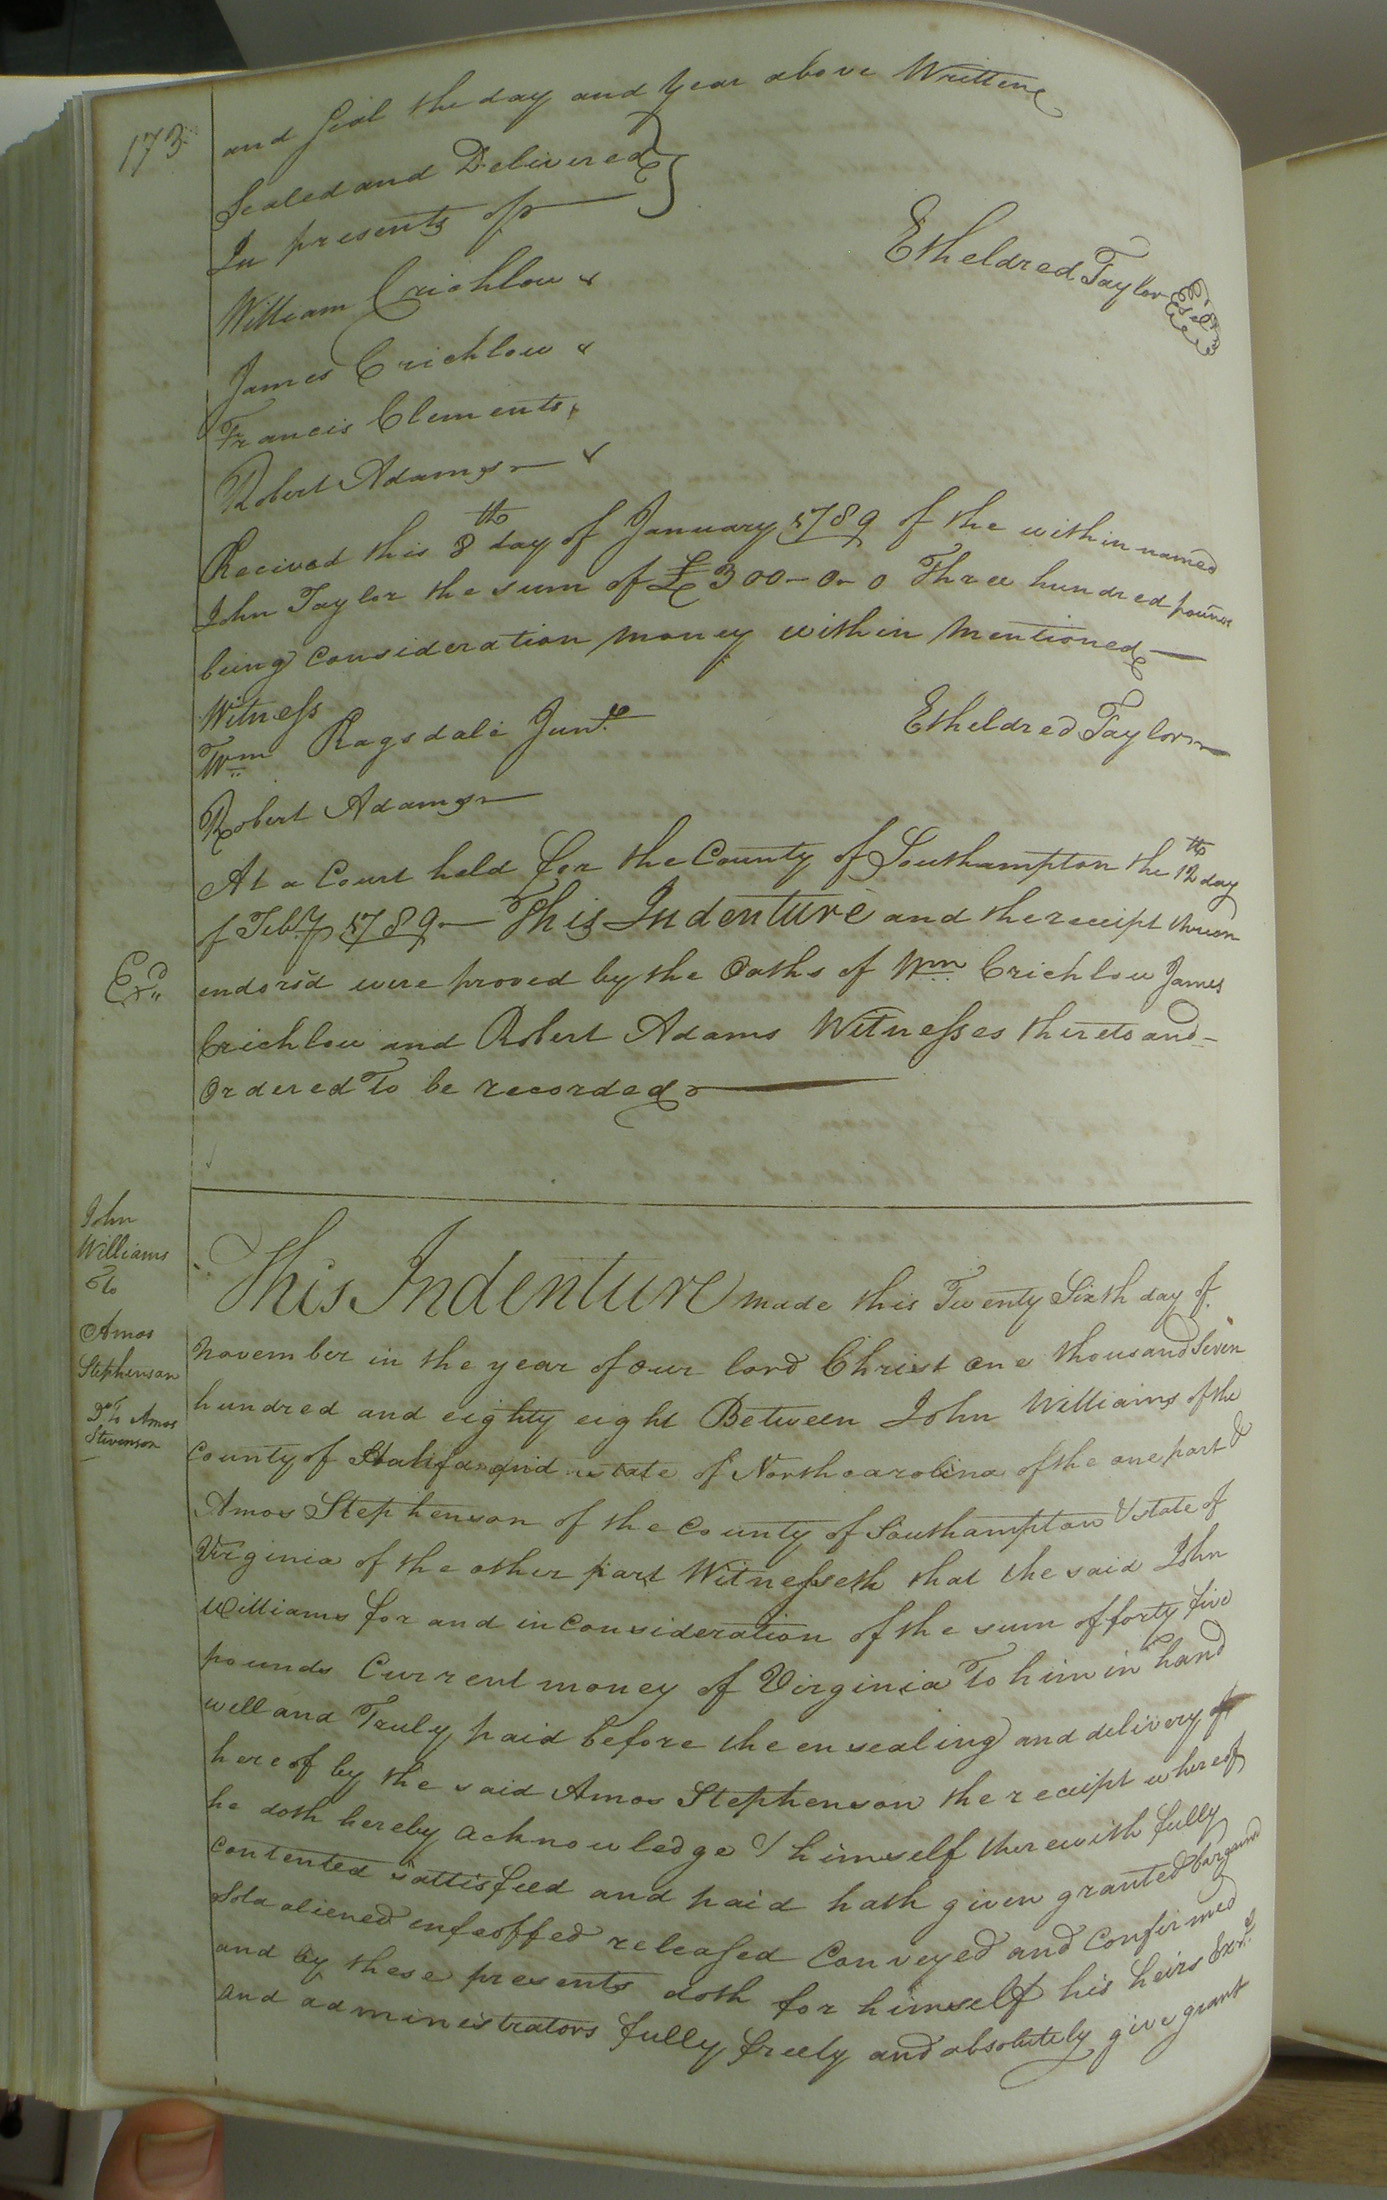 173
and Seal the day and Year above Written
Sealed and Delivered
In presents of
Etheldred Taylor Seal
William Crichlow x
James Crichlow x
Francis Clements x
Robert Adams x
Recived this 8th day of January 1789 of the within named
John Taylor the sum of £300-0-0 Three hundred pounds
being consideration money within Mentioned
Witness
Wm Ragsdale Junr
Etheldred Taylor
Robert Adams
At a Court held for the County of Southampton the 12th day
of Feby 1789 This Indenture and the receipt thereon
Exd
endors'd were proved by the Oaths of Wm Crichlow James
Crichlow and Robert Adams Witnesses thereto and
Ordered To be recorded
John
Williams
To
Amos
Stephenson
Dd To Amos
Stevenson
This Indenture made this Twenty Sixth day of
November in the year of our lord Christ One thousand Seven
hundred and eighty eight Between John Williams of the
County of Halifax and state of North carolina of the one part &
Amos Stephenson of the County of Southampton & state of
Virginia of the other part Witnesseth that the said John
Williams for and in consideration of the sum of forty five
pounds Current money of Virginia To him in hand
well and Truly paid before the ensealing and delivery
hereof by the said Amos Stephenson the receipt whereof
he doth hereby acknowledge & himself therewith fully
contented sattisfied and paid hath given granted bargained
Sold aliened enfeoffed released Conveyed and Confirmed
and by these presents doth for himself his heirs Exrs
and administrators fully freely and absolutely give grant